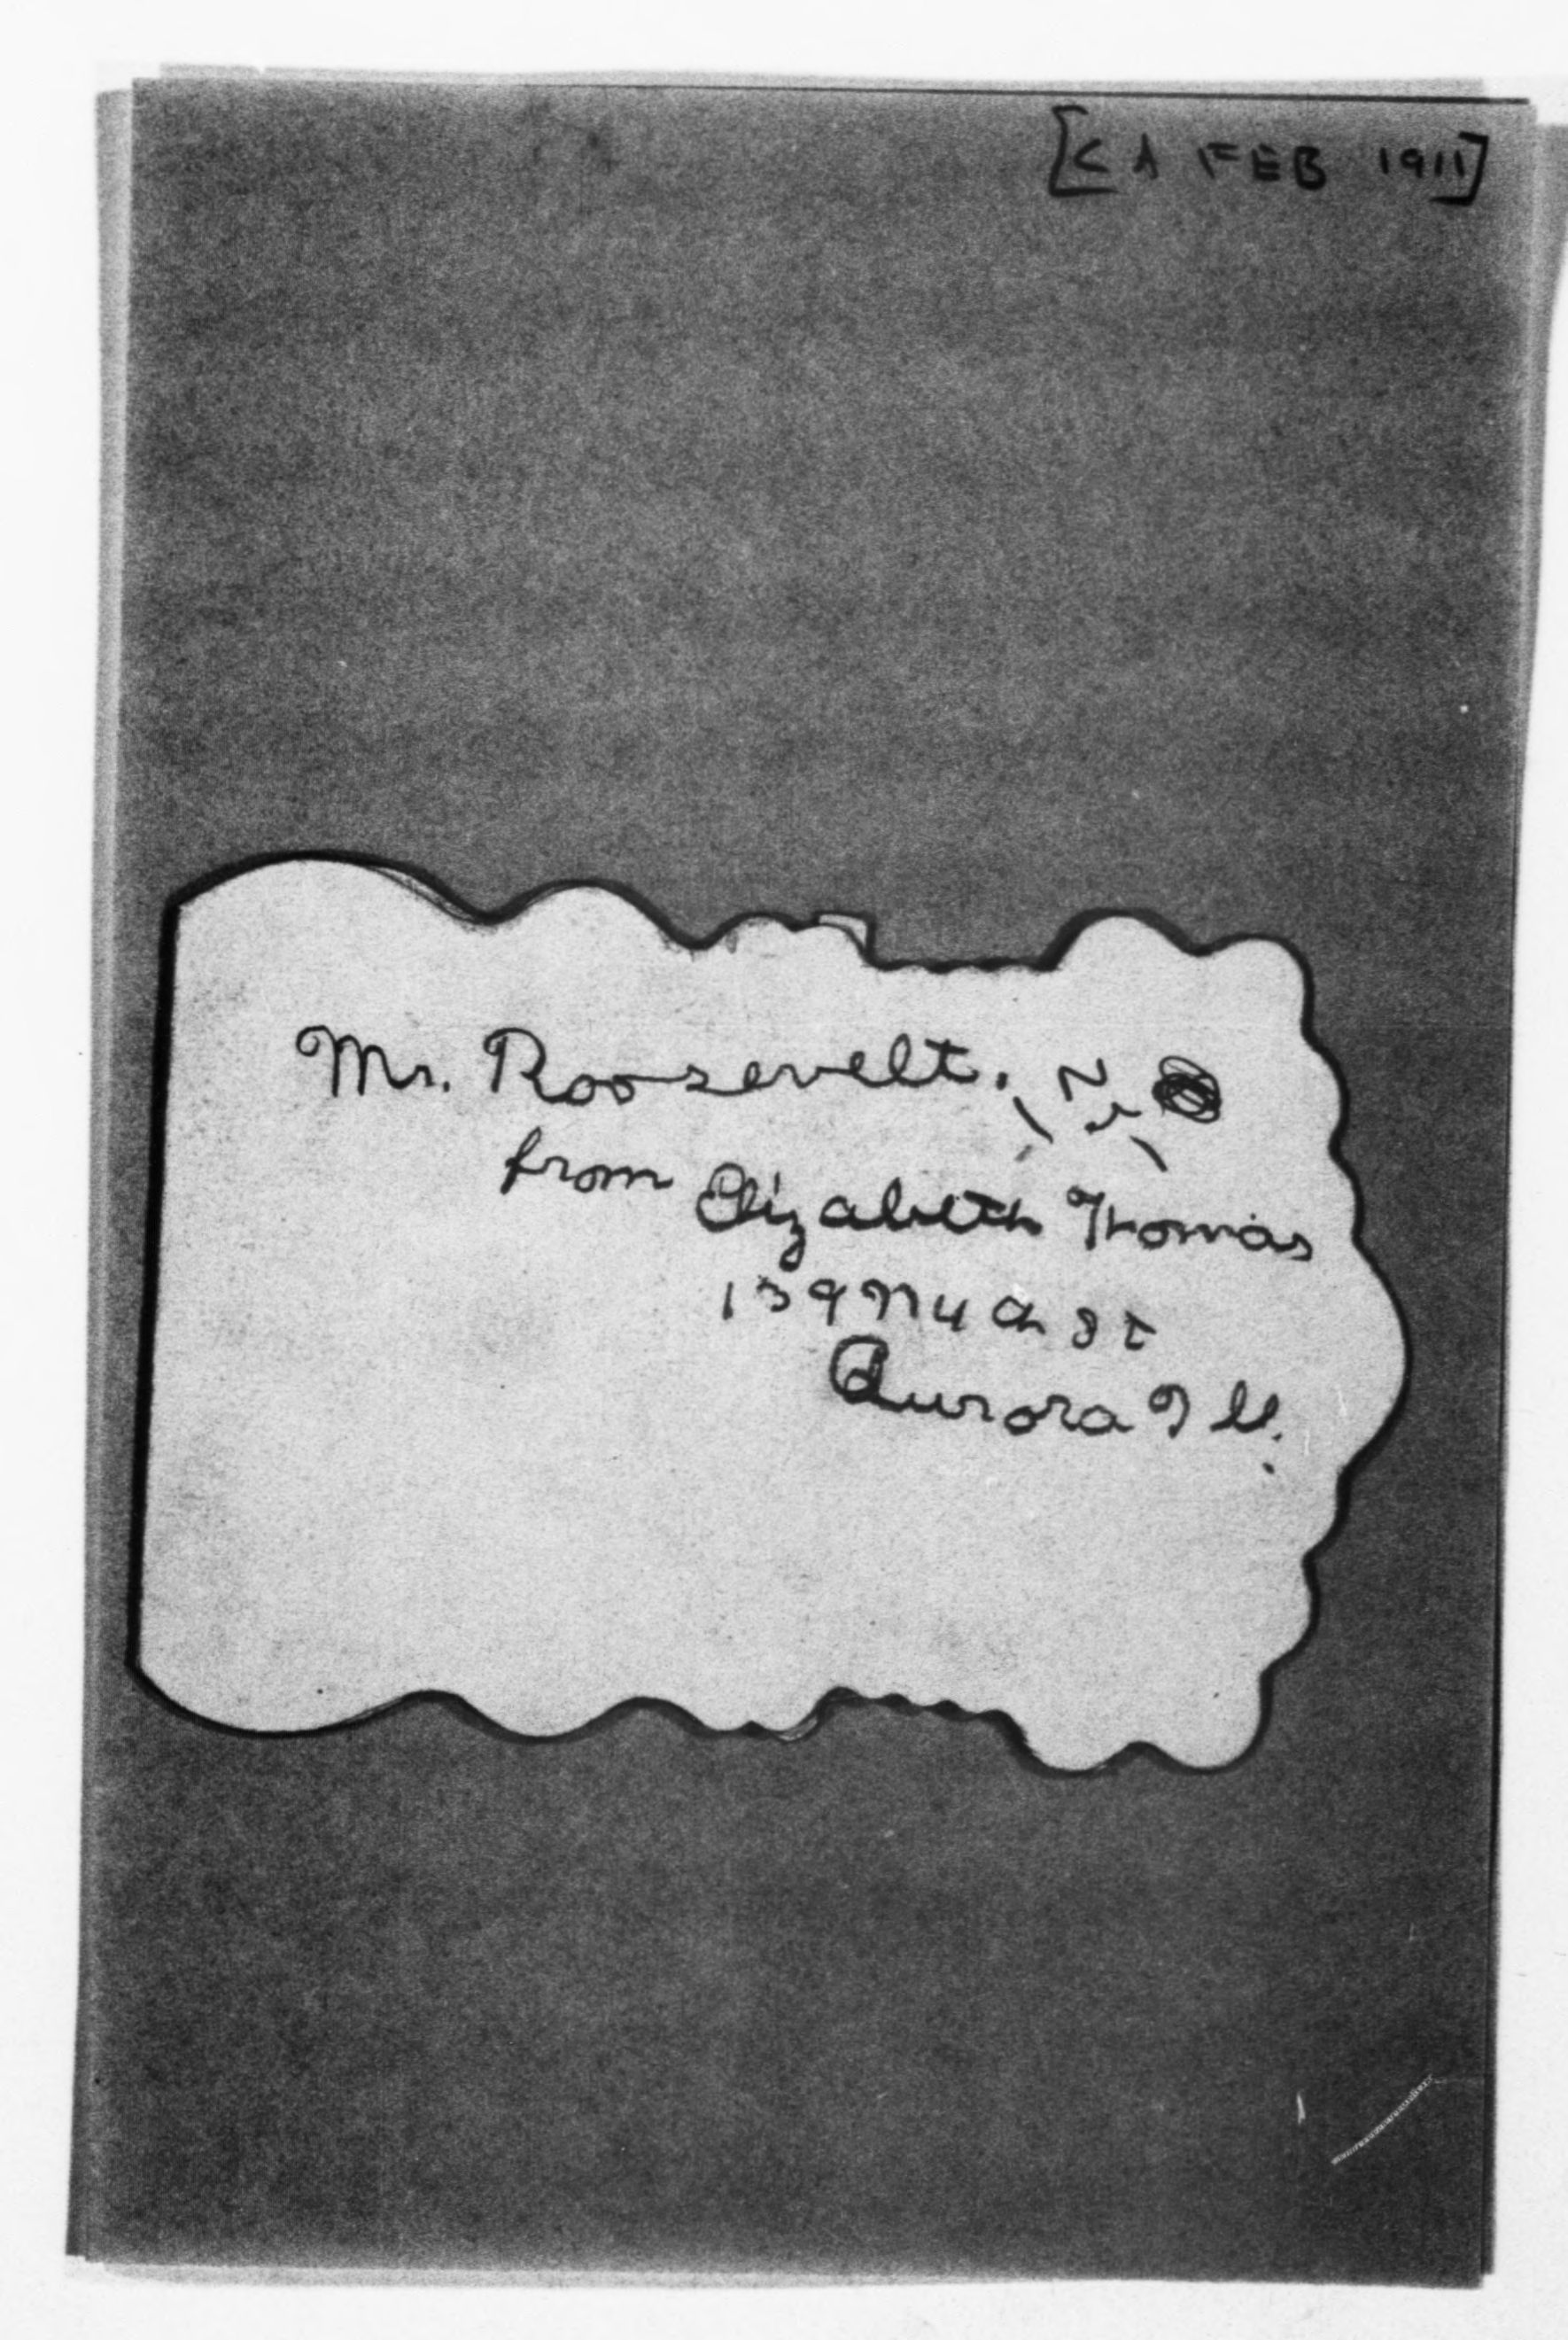 [CA FEB 1911]
Mr. Roosevelt.
from Elizabeth Thomas
139 N 4 St
Aurora Ill.